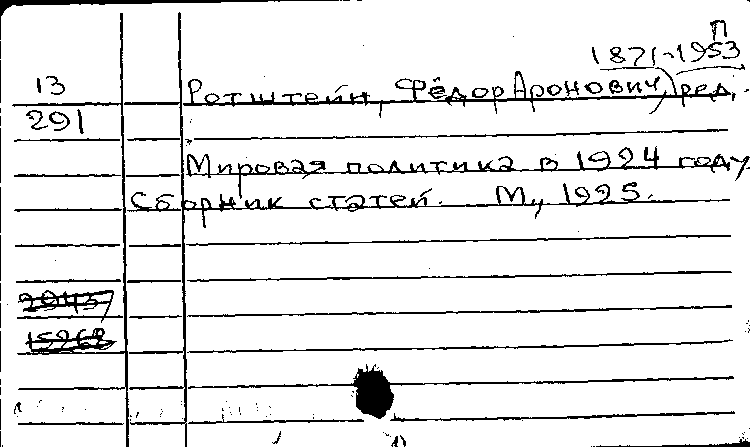 П
1871-1953
13 Ротштейн, Фёдор Аронович, ред.
291
Мировая политика в 1924 году.
Сборник статей. М., 1925.
29457
15268